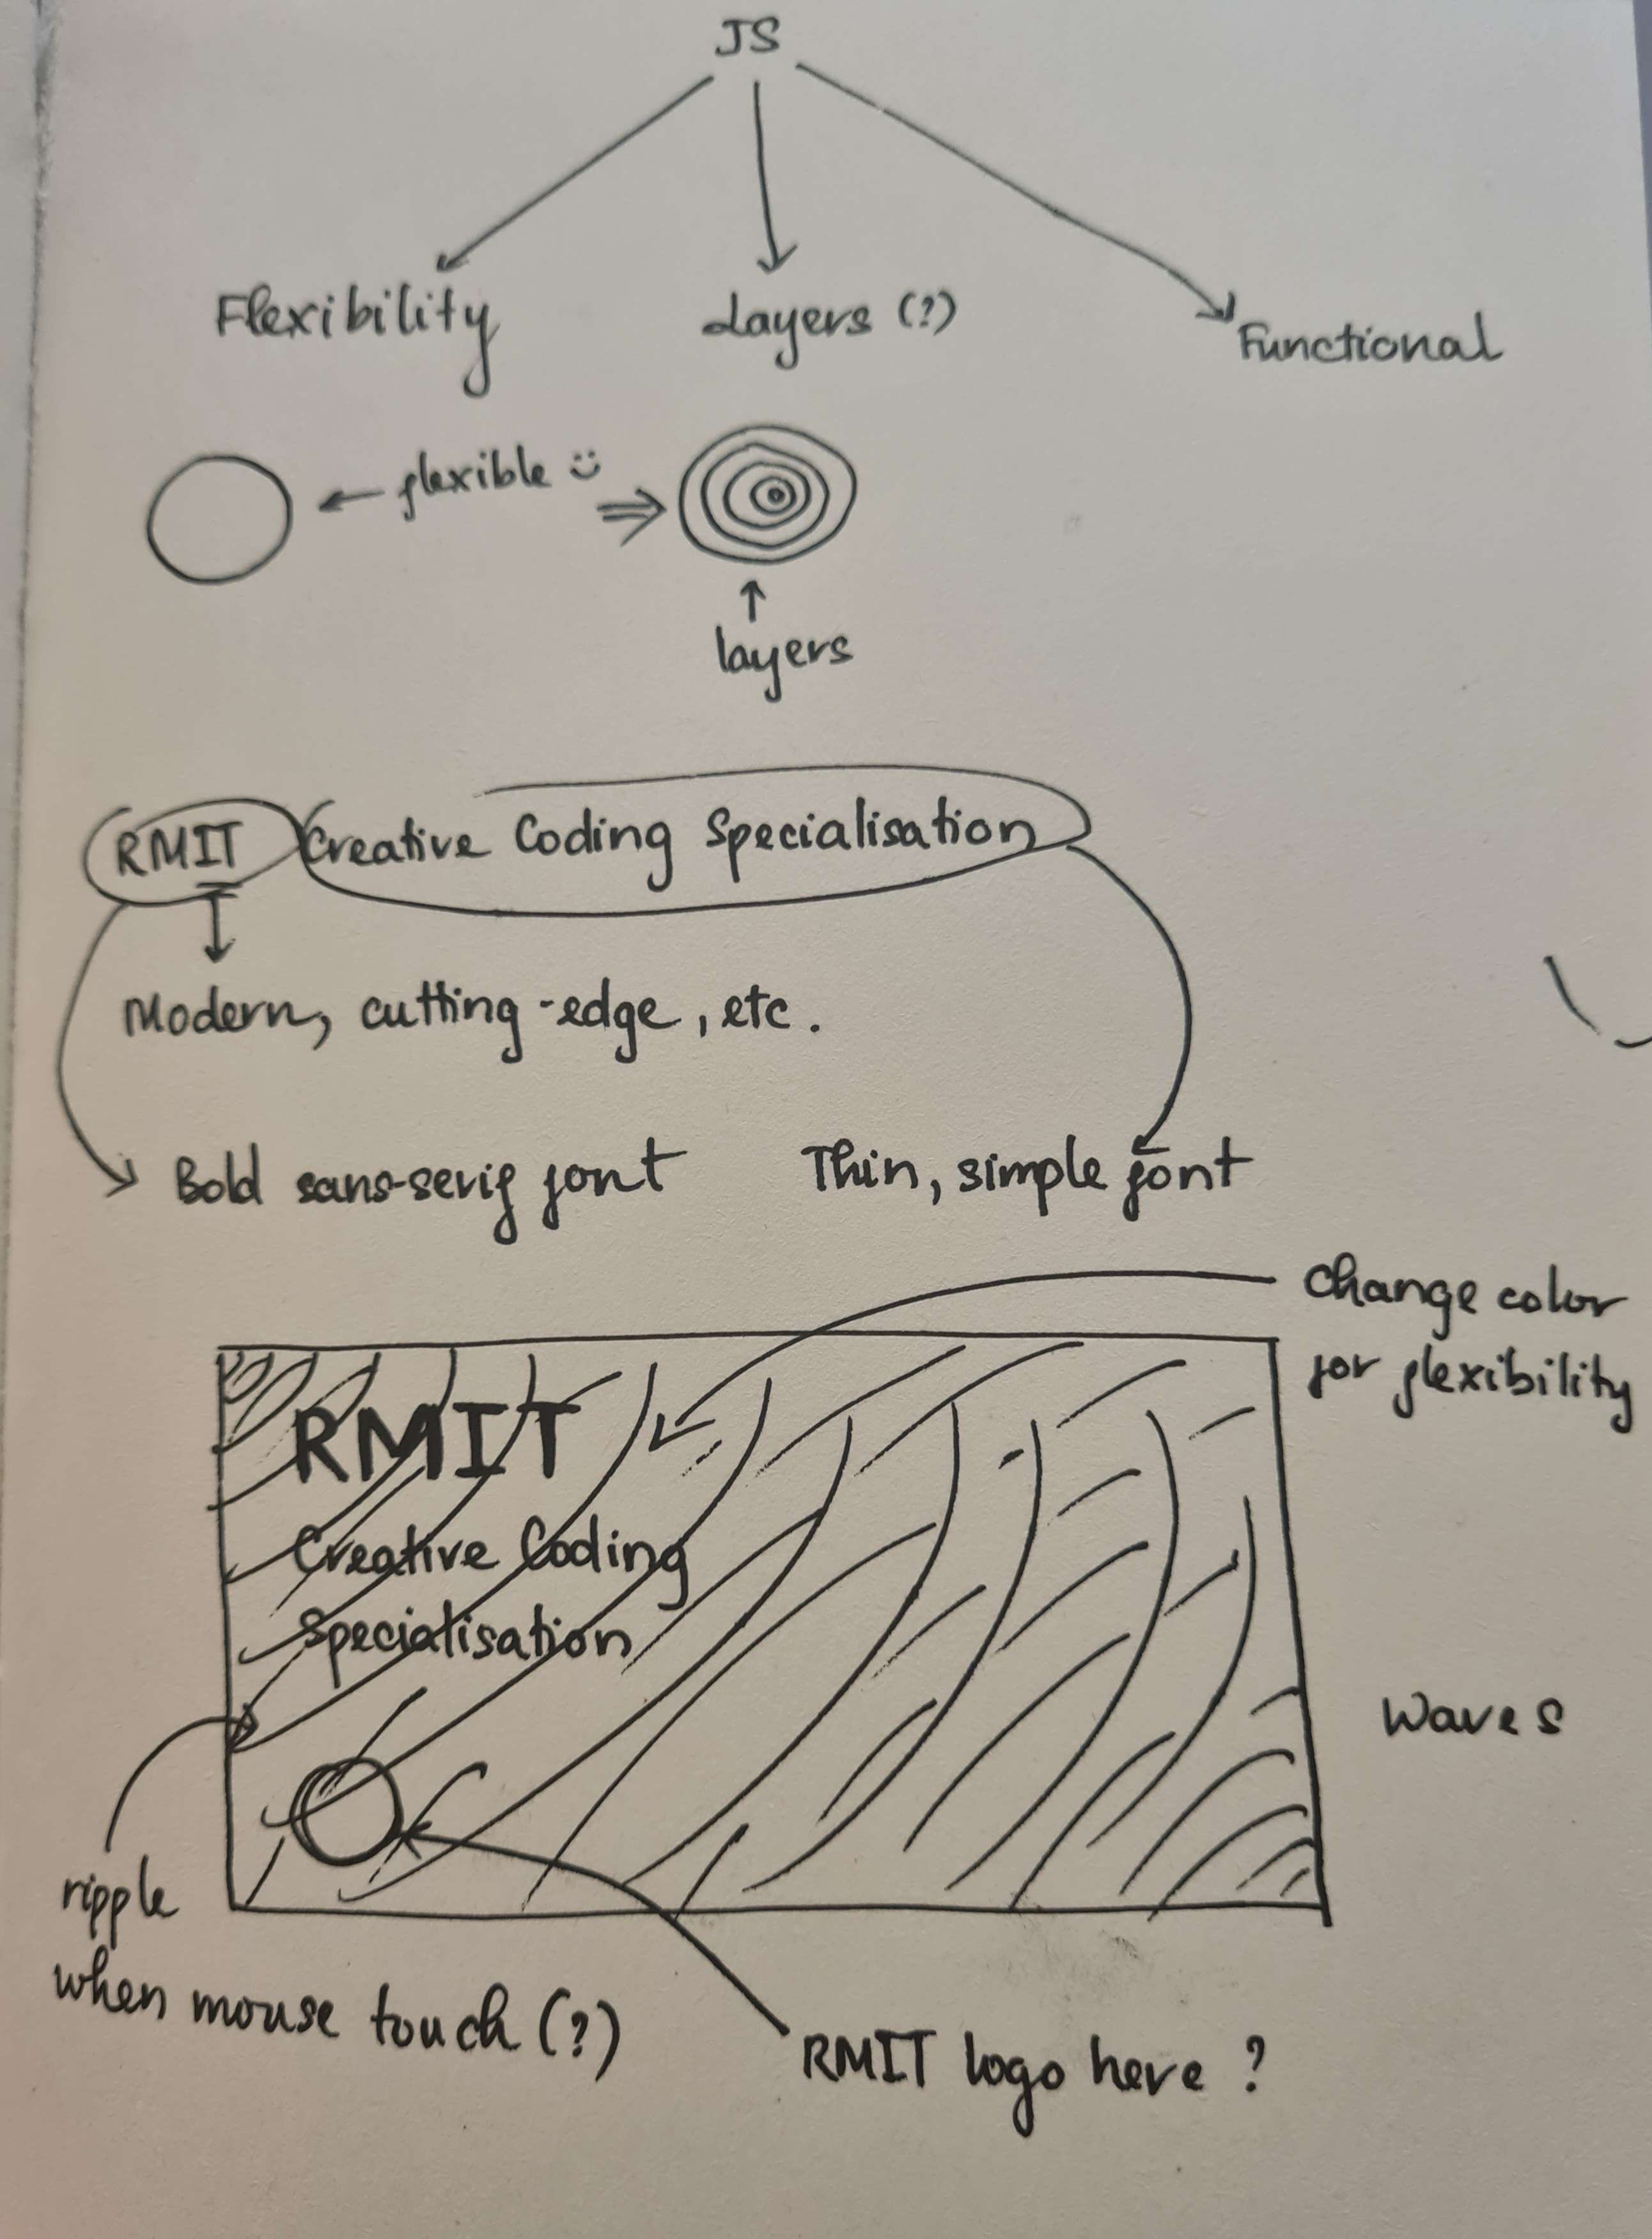 JS
Flexibility
Layers (?)
Functional
flexible
layers
RMIT Creative Coding Specialisation
Modern, cutting-edge, etc.
Bold sans-serif font
Thin, simple font
Change color
for flexibility
RMIT
Creative Coding
Specialisation
Waves
ripple
when mouse touch (?)
RMIT logo here ?